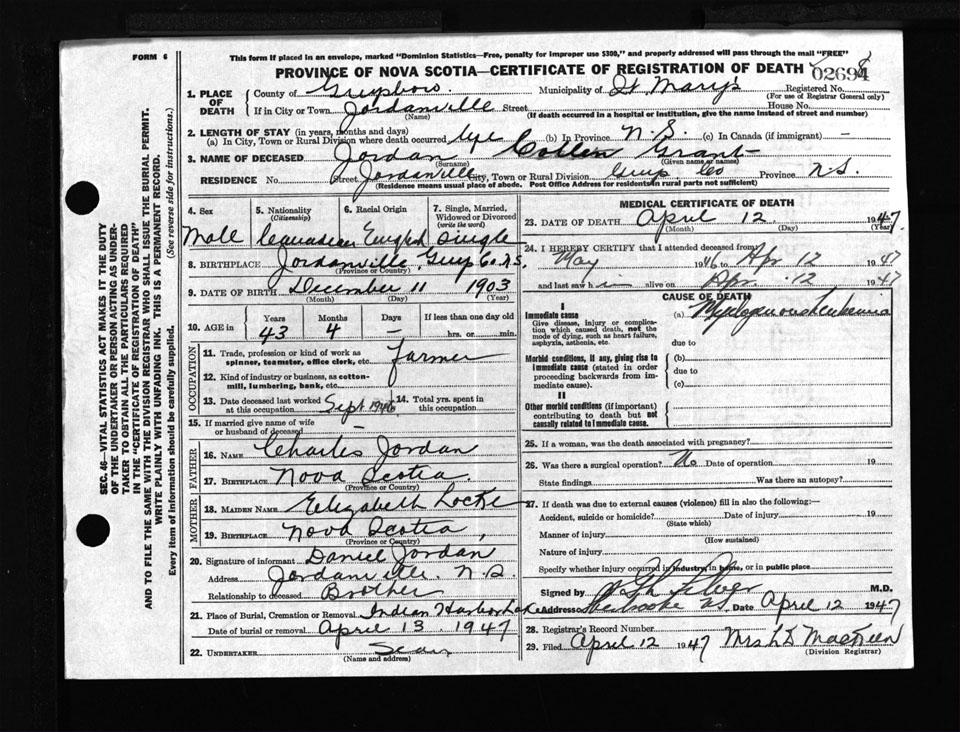 FORM 6
This form if placed in an envelope, marked "Dominion Statistics—Free, penalty for improper use $300," and properly addressed will pass through the mail "FREE"
PROVINCE OF NOVA SCOTIA—CERTIFICATE OF REGISTRATION OF DEATH
SEC. 46—VITAL STATISTICS ACT MAKES IT THE DUTY
OF THE UNDERTAKER OR PERSON ACTING AS UNDER-
TAKER TO OBTAIN ALL THE PARTICULARS REQUIRED
IN THE "CERTIFICATE OF REGISTRATION OF DEATH"
AND TO FILE THE SAME WITH THE DIVISION REGISTRAR WHO SHALL ISSUE THE BURIAL PERMIT.
WRITE PLAINLY WITH UNFADING INK. THIS IS A PERMANENT RECORD.
Every item of information should be carefully supplied. (See reverse side for instructions.)
1. PLACE OF DEATH
County of Guysboro. Municipality of St. Mary's Registered No.
(For use of Registrar General only)
If in City or Town Jordanville Street House No.
(Name) (If death occurred in a hospital or institution, give the name instead of street and number)
2. LENGTH OF STAY (in years, months and days)
(a) In City, Town or Rural Division where death occurred life (b) In Province N.S. (c) In Canada (if immigrant) —
3. NAME OF DECEASED Jordan Grant
(Surname) (Given name or names)
RESIDENCE No. Street Jordanville City, Town or Rural Division Guys. Co Province N.S.
(Residence means usual place of abode. Post Office Address for residents in rural parts not sufficient)
4. Sex 5. Nationality (Citizenship) 6. Racial Origin 7. Single, Married, Widowed or Divorced (write the word)
Male Canadian English Single
8. BIRTHPLACE Jordanville Guys Co. N.S.
(Province or Country)
9. DATE OF BIRTH December 11 1903
(Month) (Day) (Year)
10. AGE in Years Months Days If less than one day old
43 4 — hrs. or min.
OCCUPATION
11. Trade, profession or kind of work as spinner, teamster, office clerk, etc. Farmer
12. Kind of industry or business, as cotton-mill, lumbering, bank, etc.
13. Date deceased last worked at this occupation Sept 1946 14. Total yrs. spent in this occupation
15. If married give name of wife or husband of deceased
FATHER
16. NAME Charles Jordan
17. BIRTHPLACE Nova Scotia.
(Province or Country)
MOTHER
18. MAIDEN NAME Elizabeth Locke
19. BIRTHPLACE Nova Scotia,
(Province or Country)
20. Signature of informant Daniel Jordan
Address Jordanville. N.S.
Relationship to deceased Brother
21. Place of Burial, Cremation or Removal Indian Harbor Lake
Date of burial or removal April 13. 1947
22. UNDERTAKER
(Name and address)
MEDICAL CERTIFICATE OF DEATH
23. DATE OF DEATH April 12 1947
(Month) (Day) (Year)
24. I HEREBY CERTIFY that I attended deceased from
May 1946 to Apr 12 1947
and last saw h i alive on Apr. 12 1947
CAUSE OF DEATH
I
Immediate cause
Give disease, injury or complication which caused death, not the mode of dying, such as heart failure, asphyxia, asthenia, etc.
(a) Myelogenous Leukemia
due to
Morbid conditions, if any, giving rise to immediate cause (stated in order proceeding backwards from immediate cause).
(b)
due to
(c)
II
Other morbid conditions (if important) contributing to death but not causally related to immediate cause.
25. If a woman, was the death associated with pregnancy?
26. Was there a surgical operation? No Date of operation 19
State findings Was there an autopsy?
27. If death was due to external causes (violence) fill in also the following:—
Accident, suicide or homicide? Date of injury 19
(State which)
Manner of injury
(How sustained)
Nature of injury
Specify whether injury occurred in industry, in home, or in public place
Signed by M.D.
Address Sherbrooke NS Date April 12 1947
28. Registrar's Record Number
29. Filed April 12 1947 Mrs. L D MacKeen
(Division Registrar)